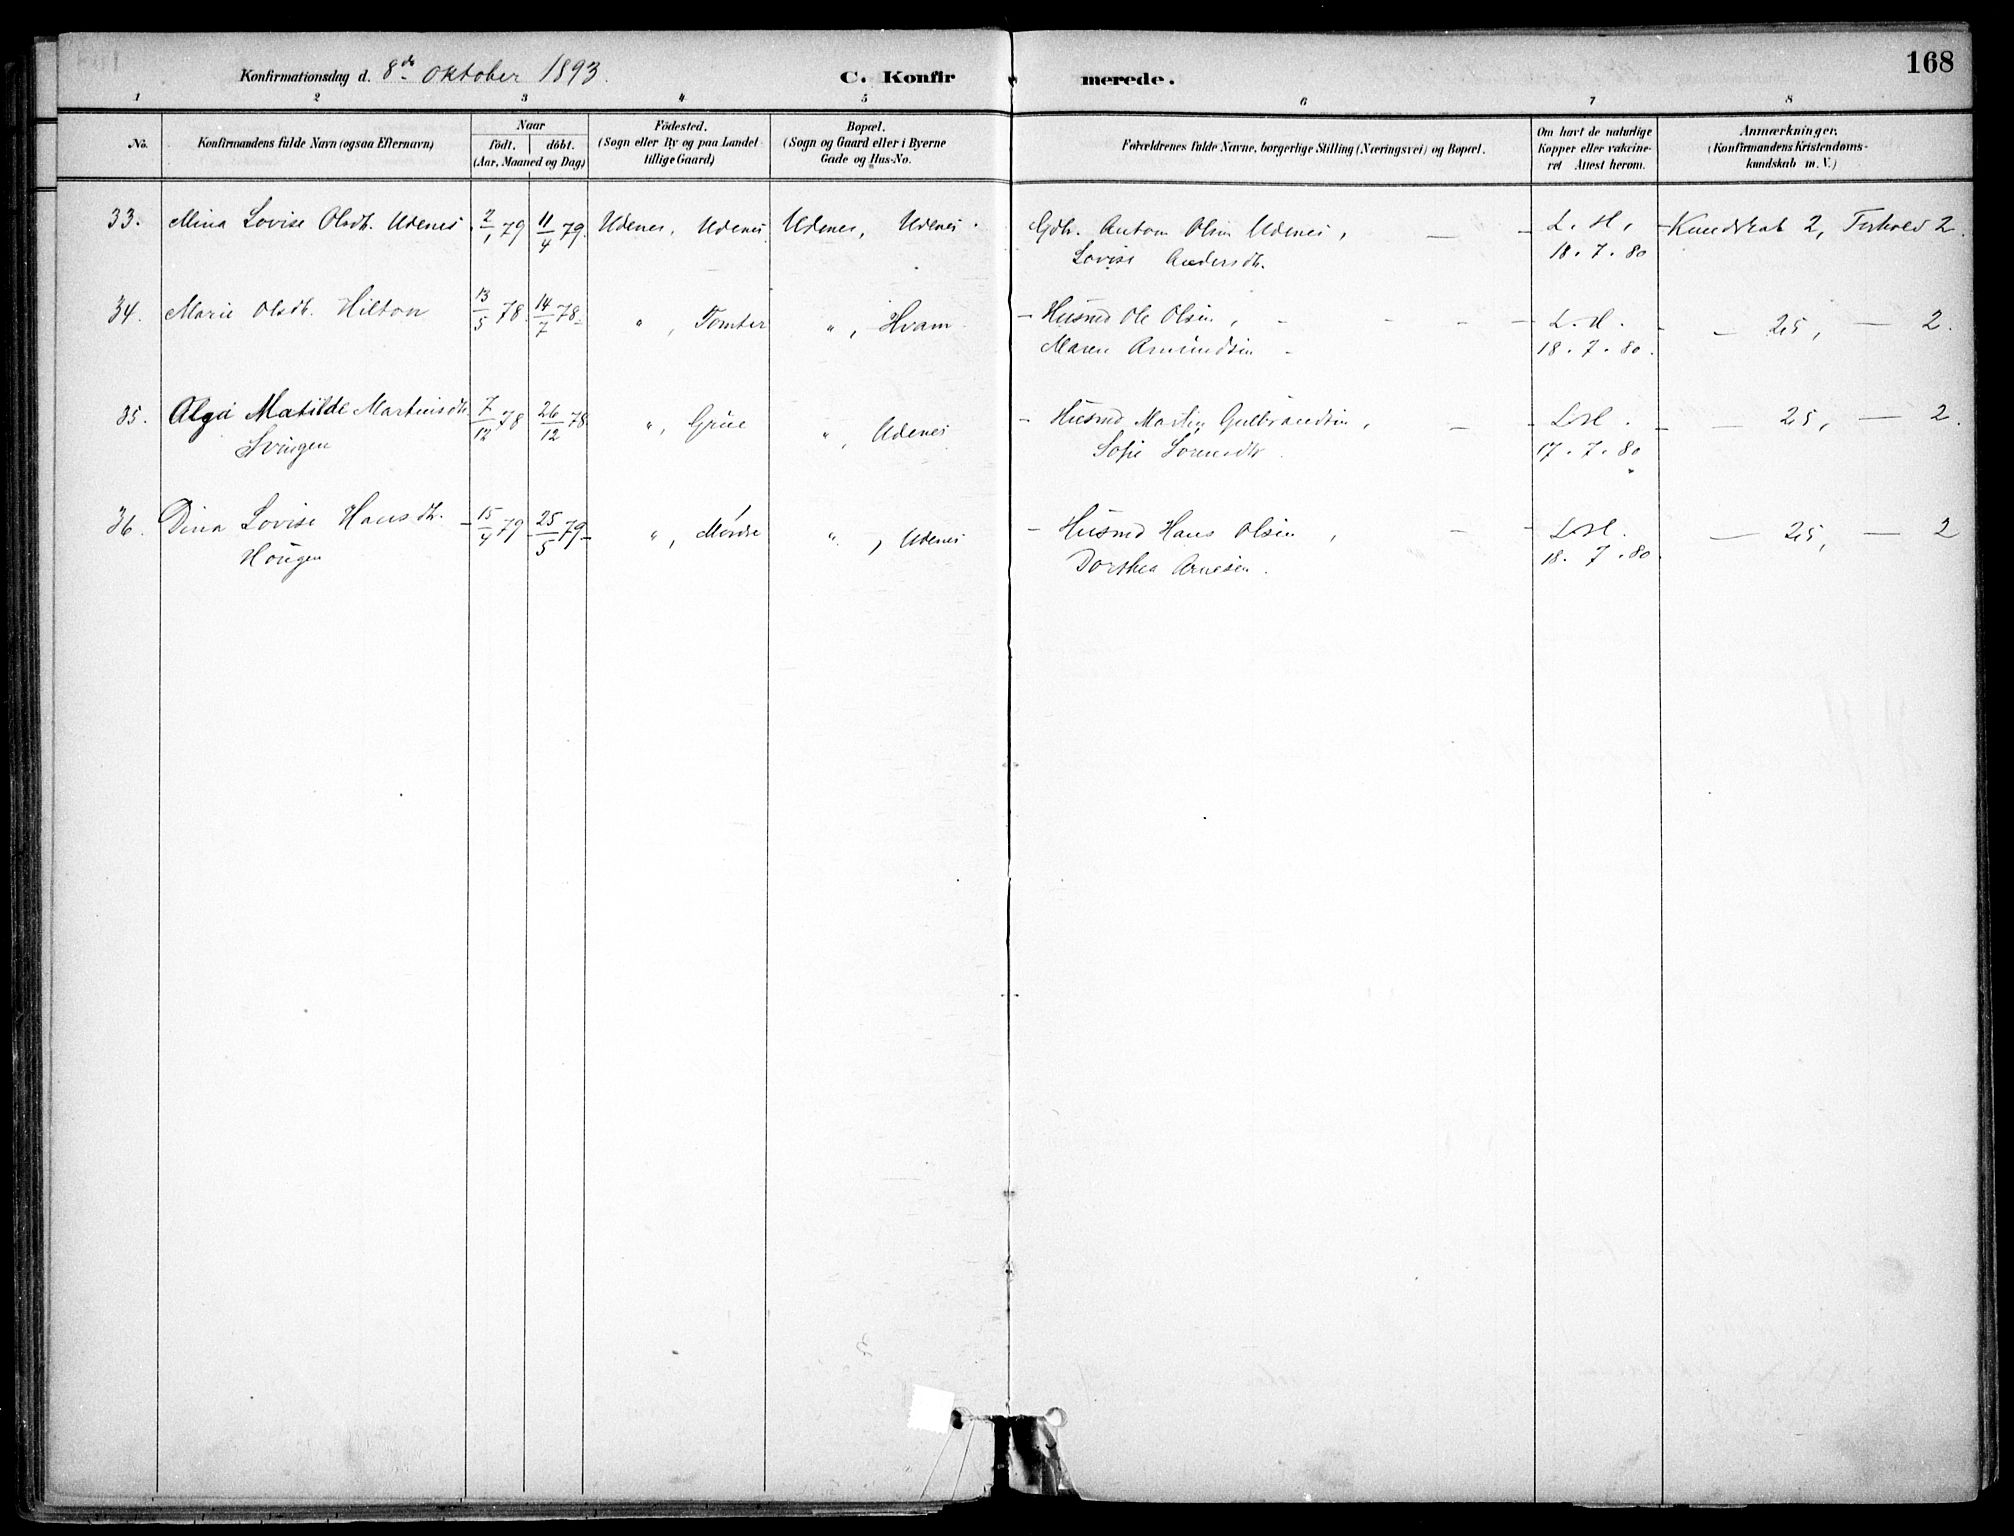 168
Konfirmationsdag d. 8de Oktober 1893.
C. Konfirmerede.
1 2 3 4 5 6 7 8
No.
Konfirmandens fulde Navn (ogsaa Efternavn)
Naar
födt. döbt.
(Aar, Maaned og Dag)
Födested.
(Sogn eller By og paa Landet
tillige Gaard)
Bopæl.
(Sogn og Gaard eller i Byerne
Gade og Hus-No.
Forældrenes fulde Navne, borgerlige Stilling (Næringsvei) og Bopæl.
Om havt de naturlige
Kopper eller vakcine-
ret Attest herom.
Anmærkninger.
(Konfirmandens Kristendoms-
kundskab m. V.)
33. Mina Lovise Olsdtr. Udenes 2/1 79 11/4 79. Udenes, Udenes. Udenes, Udenes. Gdbr. Anton Olsen Udenes, — — L. H, Kundskab 2, Forhold 2.
Lovise Andersdtr. 18. 7. 80
34. Marie Olsdtr. Hilton 13/5 78. 14/7 78. " , Tomter " , Hvam — Husmd Ole Olsen, - - - — L. H. — — 2,5, — 2.
Maren Amundsen 18. 7. 80.
35. Alga Matilde Martinsdtr. 7/12 78 26/12 78 " , Grue " , Udenes — Husmd Martin Gulbrandsen, — - L. H. — — 2,5, — 2.
Svingen Sofie Sorensdtr. 17. 7. 80
36. Dina Lovise Hansdtr. 15/4 79 25/5 79 " , Mørdre " , Udenes — Husmd Hans Olsen, — - L. H. — 2,5, — 2
Haugen Dorthea Arnesen. 18. 7. 80.